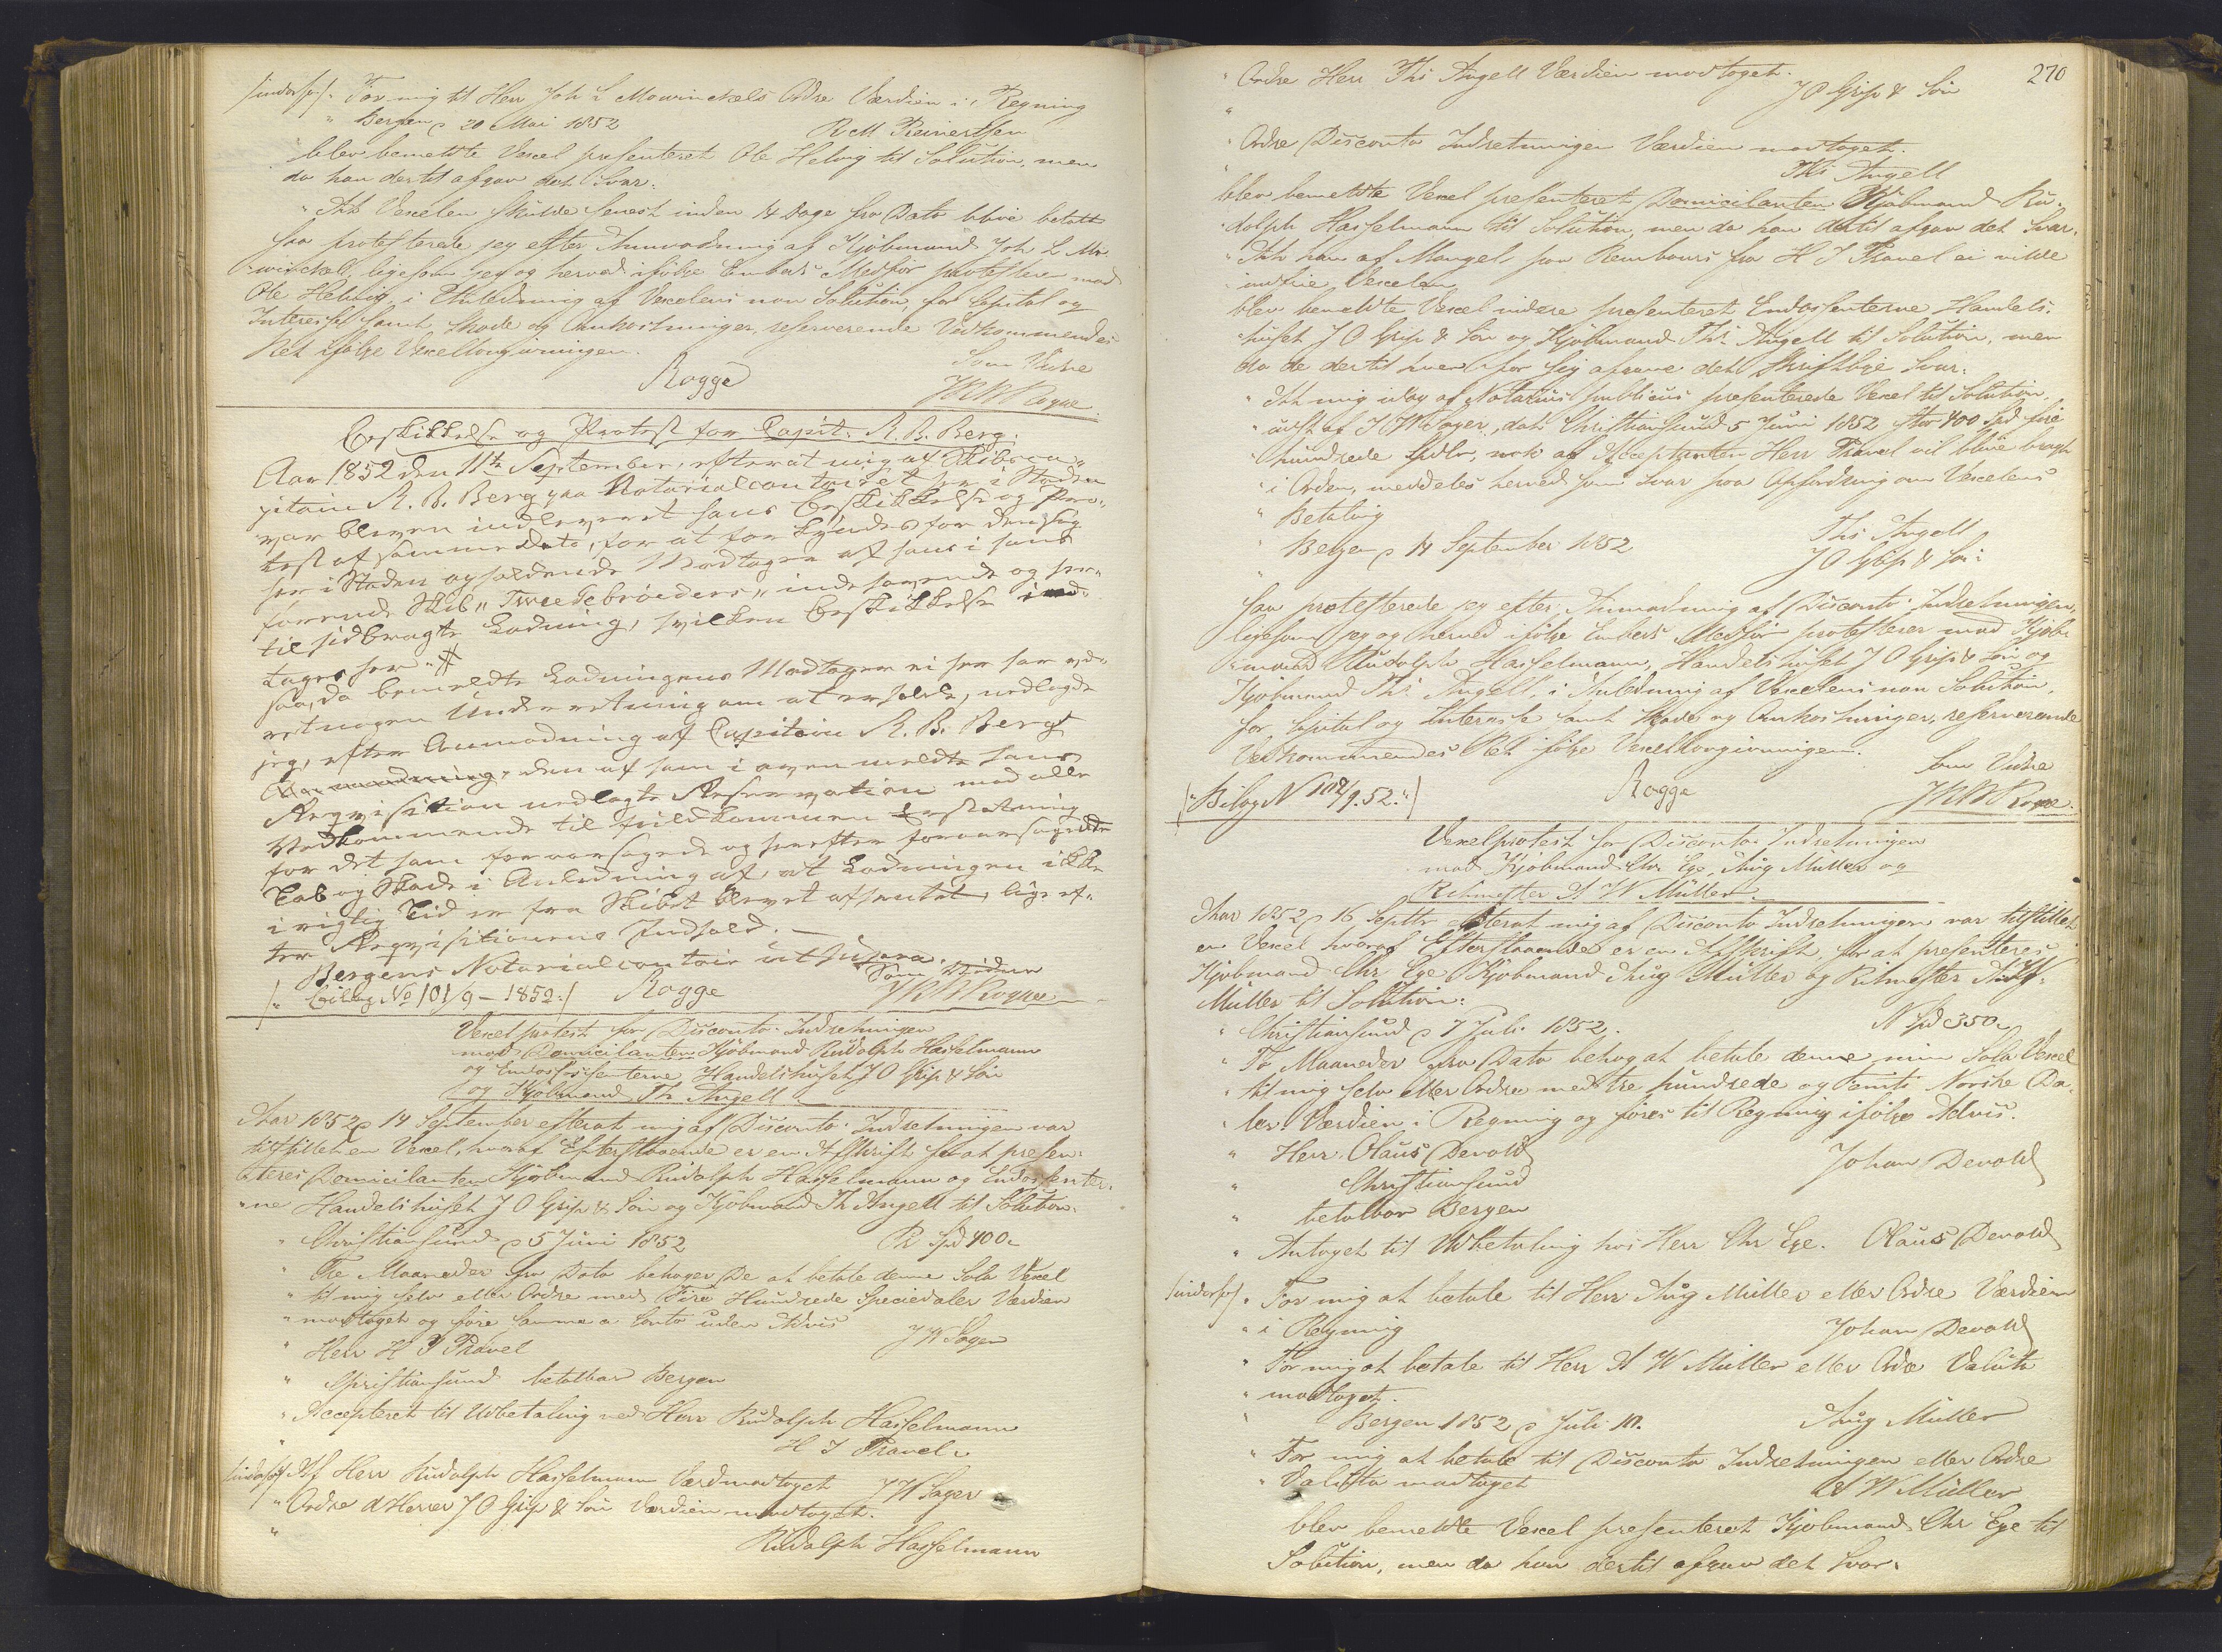 /indorf/. For mig til Herr Joh L Mowinckels Ordre Værdien i Regning
" Bergen d 20 Mai 1852 R M Reinertsen
blev bemeldte Vexel presenteret Ole Helvig til Solution, men
da han dertil afgav det Svar:
" At Vexelen skulde senest inden 14 Dage fra Dato blive betalt
saa protesterede jeg efter Anmodning af Kjøbmand Joh L Mo-
winckel, ligesom jeg og herved ifølge Embeds Medfør protesterer mod
Ole Helvig, i Anledning af Vexelens non Solution, for Capital og
Interesse samt Skade og Omkostninger, reserverende Vedkommendes
Ret ifølge Vexellovgivningen.
Som Vidne
Rogge
Beskikkelse og Protest for Capit. R. B. Berg.
Aar 1852 den 11te September, efterat mig af Skibsca-
pitain R. B. Berg paa Notarialcontoiret her i Staden
var bleven indleveret hans Beskikkelse og Pro-
test af samme Dato, for at forkyndes for den sig
her i Staden opholdende Modtager af hans i hans
førende Skib "Tweedebröeders" indehavende og her-
til hidbragte Ladning, hvilken Beskikkelse ind-
tages her "#
saa, da bemeldte Ladningens Modtager ei her har væ-
ret nogen Underretning om at erholde, nedlagde
jeg, efter Anmodning af Capitain R. B. Berg
den af ham i ovenmeldte hans
Reqvisition nedlagte Reservation mod alle
Vedkommende til fuldkommen Erstatning
for det ham foraarsagede og herefter foraarsagende
Tab og Skade i Anledning af, at Ladningen ikke
i rigtig Tid er fra Skibet blevet afhentet, lige ef-
ter Reqvisitionens Indhold. -
Bergens Notarialcontoir ut supra.
Som Vidne
/: Bilag No 101/9 - 1852:/ Rogge
Vexelprotest for Disconto Indretningen
mod Domicilanten Kjøbmand Rudolph Hasselmann
og Endossenterne Handelshuset J O Grip & Søn
og Kjøbmand Th Angell
Aar 1852 d 14 September efterat mig af Disconto Indretningen var
tilstillet en Vexel, hvoraf Efterstaaende er en Afskrift for at presen-
teres Domicilanten Kjøbmand Rudolph Hasselmann og Endossenter-
ne Handelshuset J O Grip & Søn og Kjøbmand Th Angell til Solution:
" Christiansund d 5 Juni 1852 Pr Spd 400.
" Tre Maaneder fra Dato behager De at betale denne Sola Vexel
" til mig selv eller Ordre med Fire Hundrede Speciedaler Værdien
" modtaget og føre samme a Conto uden Advis J W Sager
" Herr H J Travel
" Christiansund betalbar Bergen
" Accepteret til Udbetaling ved Herr Rudolph Hasselmann
" H J Travel.
/indorf/ Af Herr Rudolph Hasselmann Værd modtaget J W Sager
" Ordre d Herrer J O Grip & Søn Værdien modtaget.
" Rudolph Hasselmann
270
" Ordre Herr Ths Angell Værdien modtaget.
" J O Grip & Søn
" Ordre Disconto Indretningen Værdien modtaget.
" Ths Angell
blev bemeldte Vexel presenteret Domicilanten Kjøbmand Ru-
dolph Hasselmann til Solution, men da han dertil afgav det Svar:
" At han af Mangel paa Rembours fra H J Travel ei vilde
indfrie Vexelen
blev bemeldte Vexel videre presenteret Endossenterne Handels-
huset J O Grip & Søn og Kjøbmand Ths Angell til Solution, men
da de dertil hver for sig afgave det skriftlige Svar:
" At mig idag af Notarius publicus presenterede Vexel til Solution
" udst af J W Sager, dat: Christiansund 5 Juni 1852 stor 400 Spd fire
" hundrede Spdlr, nok af Acceptanten Herr Travel vil blive bragt
" i Orden, meddeles herved som Svar paa Opfordring om Vexelens
" Betaling
" Bergen d 14 September 1852 Ths Angell
" J O Grip & Søn:
saa protesterede jeg efter Anmodning af Disconto Indretningen,
ligesom jeg og herved ifølge Embeds Medfør protesterer mod Kjøb-
mand Rudolph Hasselmann, Handelshuset J O Grip & Søn og
Kjøbmand Ths Angell, i Anledning af Vexelens non Solution,
for Capital og Interesse samt Skade og Omkostninger, reserverende
Vedkommendes Ret ifølge Vexellovgivningen.
Som Vidne
/: Bilag N 102/9.52. :/ Rogge
Vexelprotest for Disconto Indretningen
mod Kjøbmand Chr Ege, Aug Müller og
Ritmester A W Müller
Aar 1852 d 16 Septbr efterat mig af Disconto Indretningen var tilstillet
en Vexel hvoraf Efterstaaende er en Afskrift, for at presenteres
Kjøbmand Chr Ege Kjøbmand Aug Müller og Ritmester A W
Müller til Solution:
" Christiansund d 7 Juli 1852. N Spd 350.
" To Maaneder fra Dato behag at betale denne min Sola Vexel
" til mig selv eller Ordre med tre hundrede og femti Norske Da-
" ler. Værdien i Regning og føres til Regning ifølge Advis.
" Herr Olaus Devold Johan Devold
" Christiansund
" betalbar Bergen
" Antaget til Udbetaling hos Herr Chr Ege. Olaus Devold
/indorf/. For mig at betale til Herr Aug Müller eller Ordre Værdien
" i Regning Johan Devold
" For mig at betale til Herr A W Müller eller Ordre Valuta
" modtaget.
" Bergen 1852 d Juli 10. Aug Müller
" For mig at betale til Disconto Indretningen eller Ordre
" Valuta modtaget A W Müller
blev bemeldte Vexel presenteret Kjøbmand Chr Ege til
Solution, men da han dertil afgav det Svar: